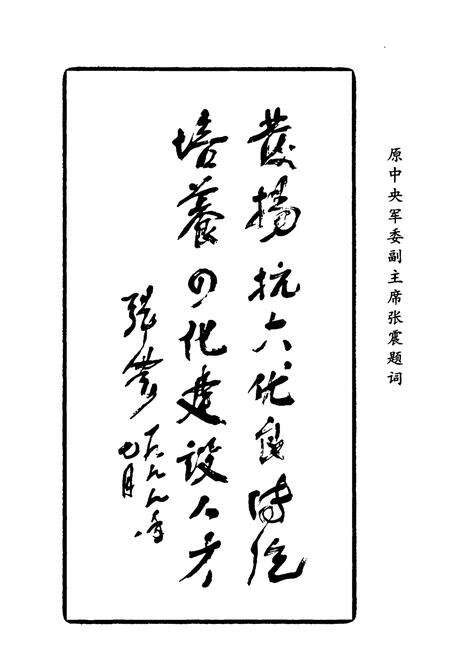 原中央军委副主席张震题词
發揚抗大优良传统
培養四化建设人才
张震
一九八八年
七月